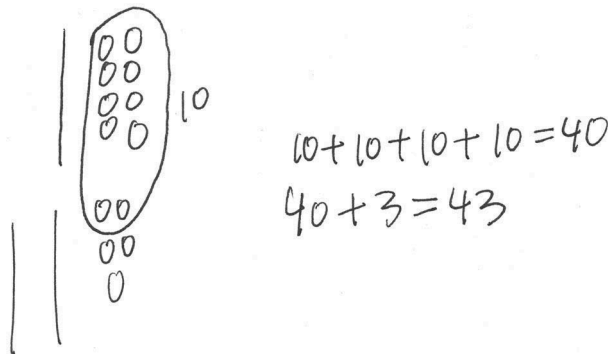 10
10+10+10+10=40
40+3=43